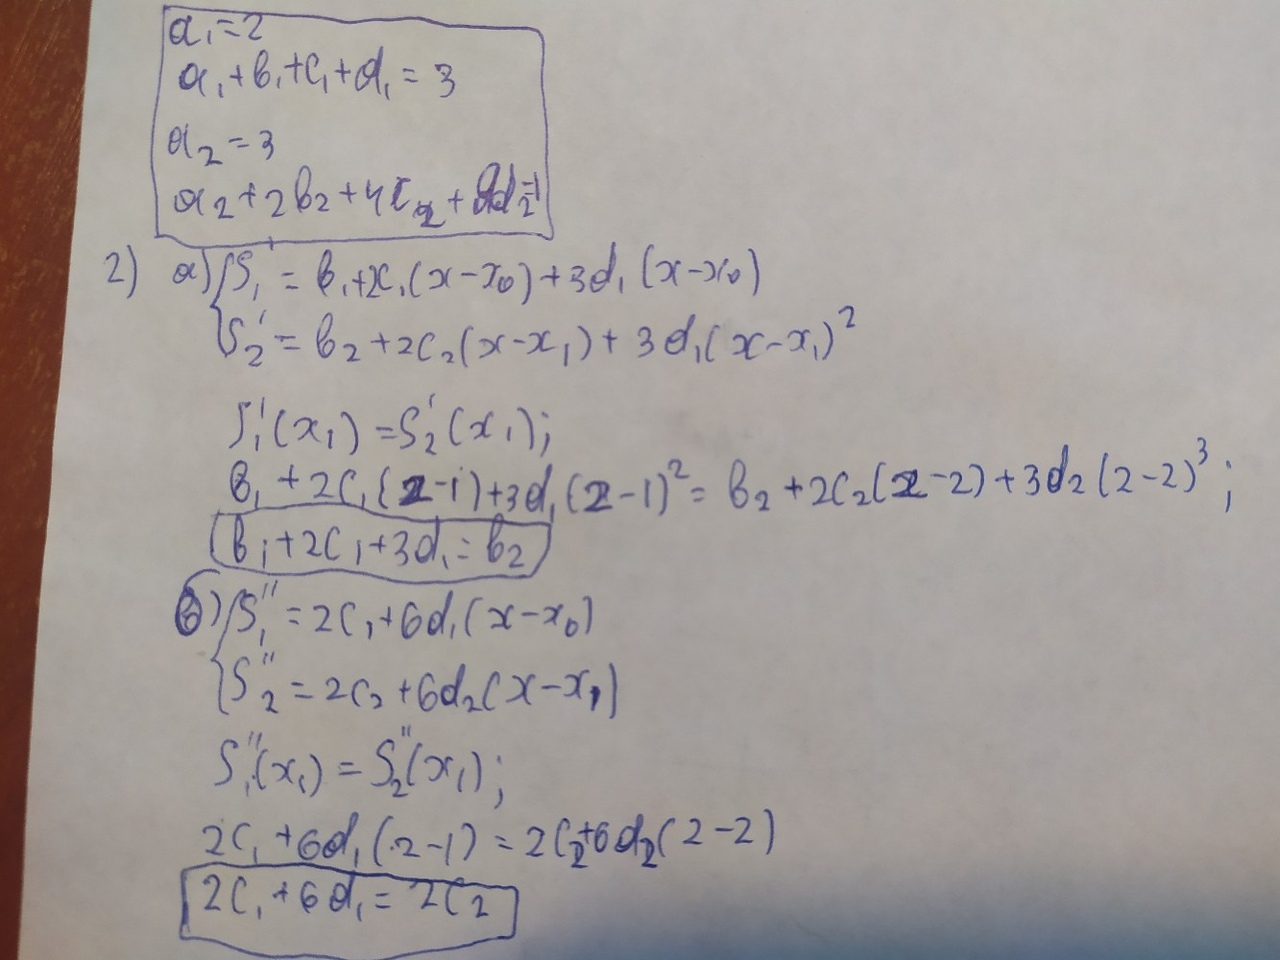 a₁=2
a₁+b₁+c₁+d₁=3
a₂=3
a₂+2b₂+4c₂+8d₂=1
2) a) S₁'=b₁+2c₁(x-x₀)+3d₁(x-x₀)
S₂'=b₂+2c₂(x-x₁)+3d₁(x-x₁)²
S₁'(x₁)=S₂'(x₁);
b₁+2c₁(2-1)+3d₁(2-1)²=b₂+2c₂(2-2)+3d₂(2-2)³;
b₁+2c₁+3d₁=b₂
б) S₁''=2c₁+6d₁(x-x₀)
S₂''=2c₂+6d₂(x-x₁)
S₁''(x₁)=S₂''(x₁);
2c₁+6d₁(2-1)=2c₂+6d₂(2-2)
2c₁+6d₁=2c₂